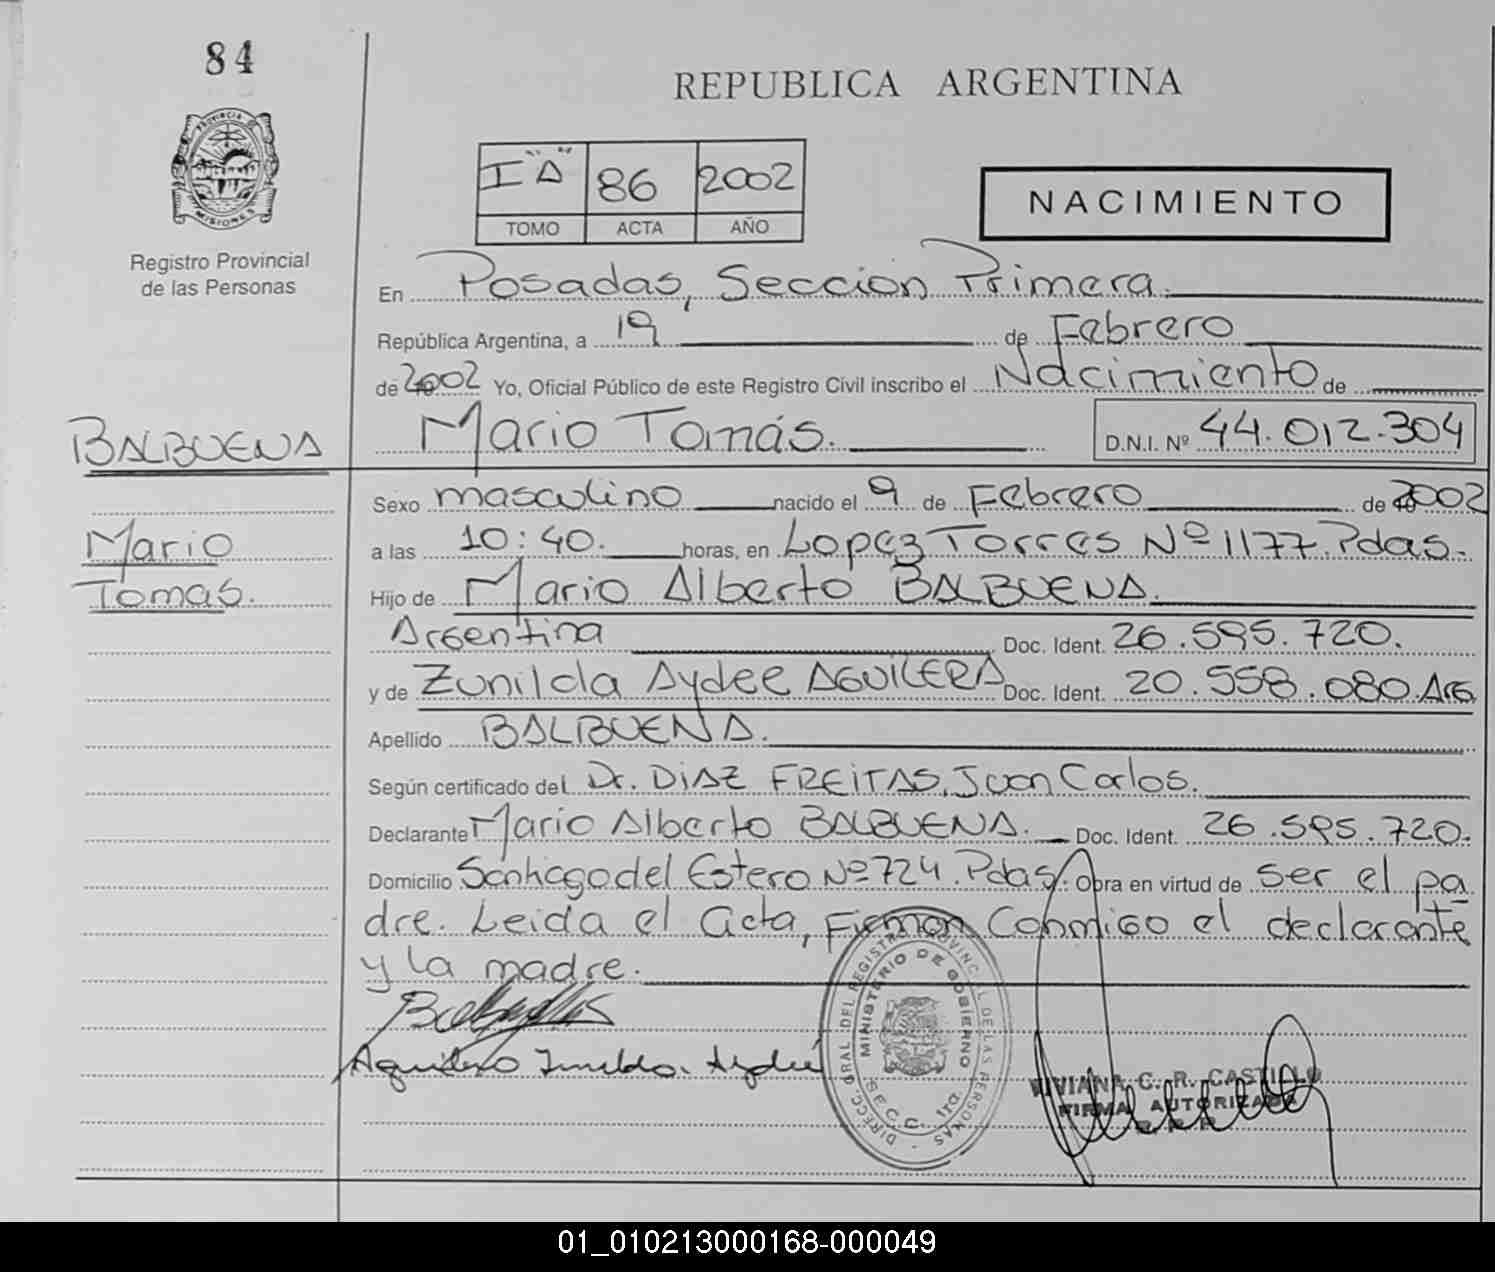 84
REPUBLICA ARGENTINA
PROVINCIA DE MISIONES
Registro Provincial
de las Personas
I "A" 86 2002
TOMO ACTA AÑO
NACIMIENTO
En Posadas, Sección Primera.
República Argentina, a 19 de Febrero
de 2002 Yo, Oficial Público de este Registro Civil inscribo el Nacimiento de
BALBUENA
Mario Tomás. D.N.I. Nº 44.012.304
Sexo masculino nacido el 9 de Febrero de 2002
Mario
a las 10:40. horas, en Lopez Torres Nº 1177. Pdas.
Tomás.
Hijo de Mario Alberto BALBUENA.
Argentina Doc. Ident. 26.595.720.
y de Zunilda Aydee AGUILERA Doc. Ident. 20.558.080. Arg
Apellido BALBUENA.
Según certificado del Dr. DIAZ FREITAS, Juan Carlos.
Declarante Mario Alberto BALBUENA. Doc. Ident. 26.595.720.
Domicilio Santiago del Estero Nº 724. Pdas. Obra en virtud de ser el pa
dre. Leida el acta, Firman conmigo el declarante
y la madre.
Aguilera Zunilda Aydeé
DIRECC. GRAL. DEL REGISTRO PROVINCIAL DE LAS PERSONAS
MINISTERIO DE GOBIERNO
SECC. 1ra.
VIVIANA C. R. CASTILLO
FIRMA AUTORIZADA
01_010213000168-000049